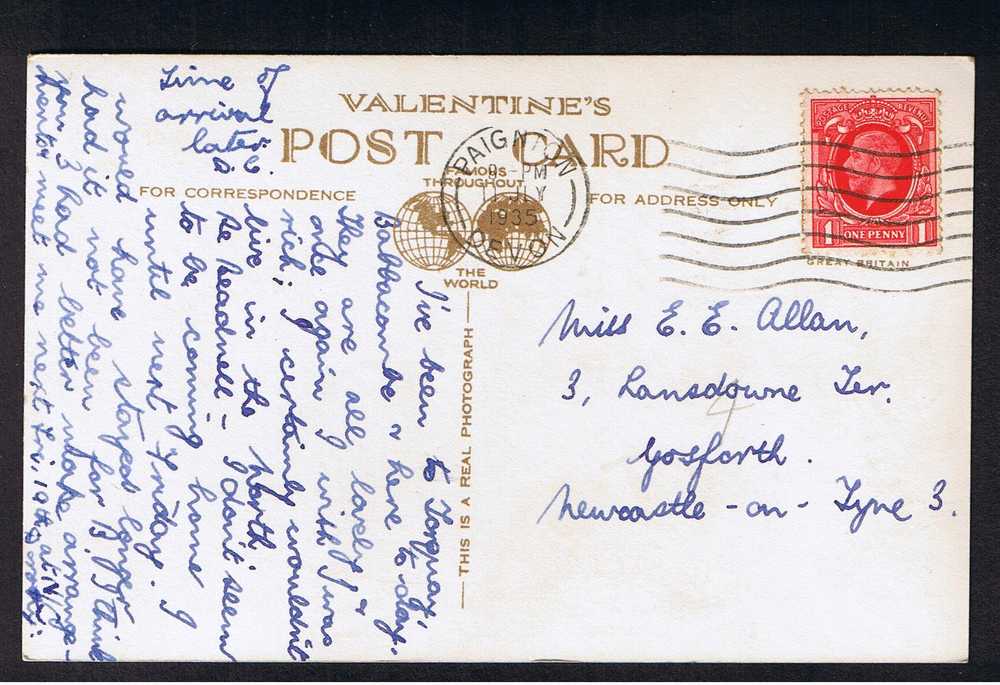 VALENTINE'S
POST CARD
FAMOUS
THROUGHOUT
FOR CORRESPONDENCE
FOR ADDRESS ONLY
THE
WORLD
THIS IS A REAL PHOTOGRAPH
PAIGNTON
PM
1935
DEVON
POSTAGE REVENUE
1 ONE PENNY 1
GREAT BRITAIN
Miss E. E. Allan,
3, Lansdowne Ter.
Gosforth.
Newcastle-on-Tyne 3.
I've been to Torquay,
Babbacombe & here to-day.
They are all lovely &
once again I wish I was
rich; I certainly wouldn't
live in the north.
Se headnell - I don't seem
to be coming home
until next Friday. I
would have stayed longer
had it not been for B. I think
you 3 had better make arrange-
ments meet me next Fri, 19th, at N/C
Time of
arrival
later.
D.C.